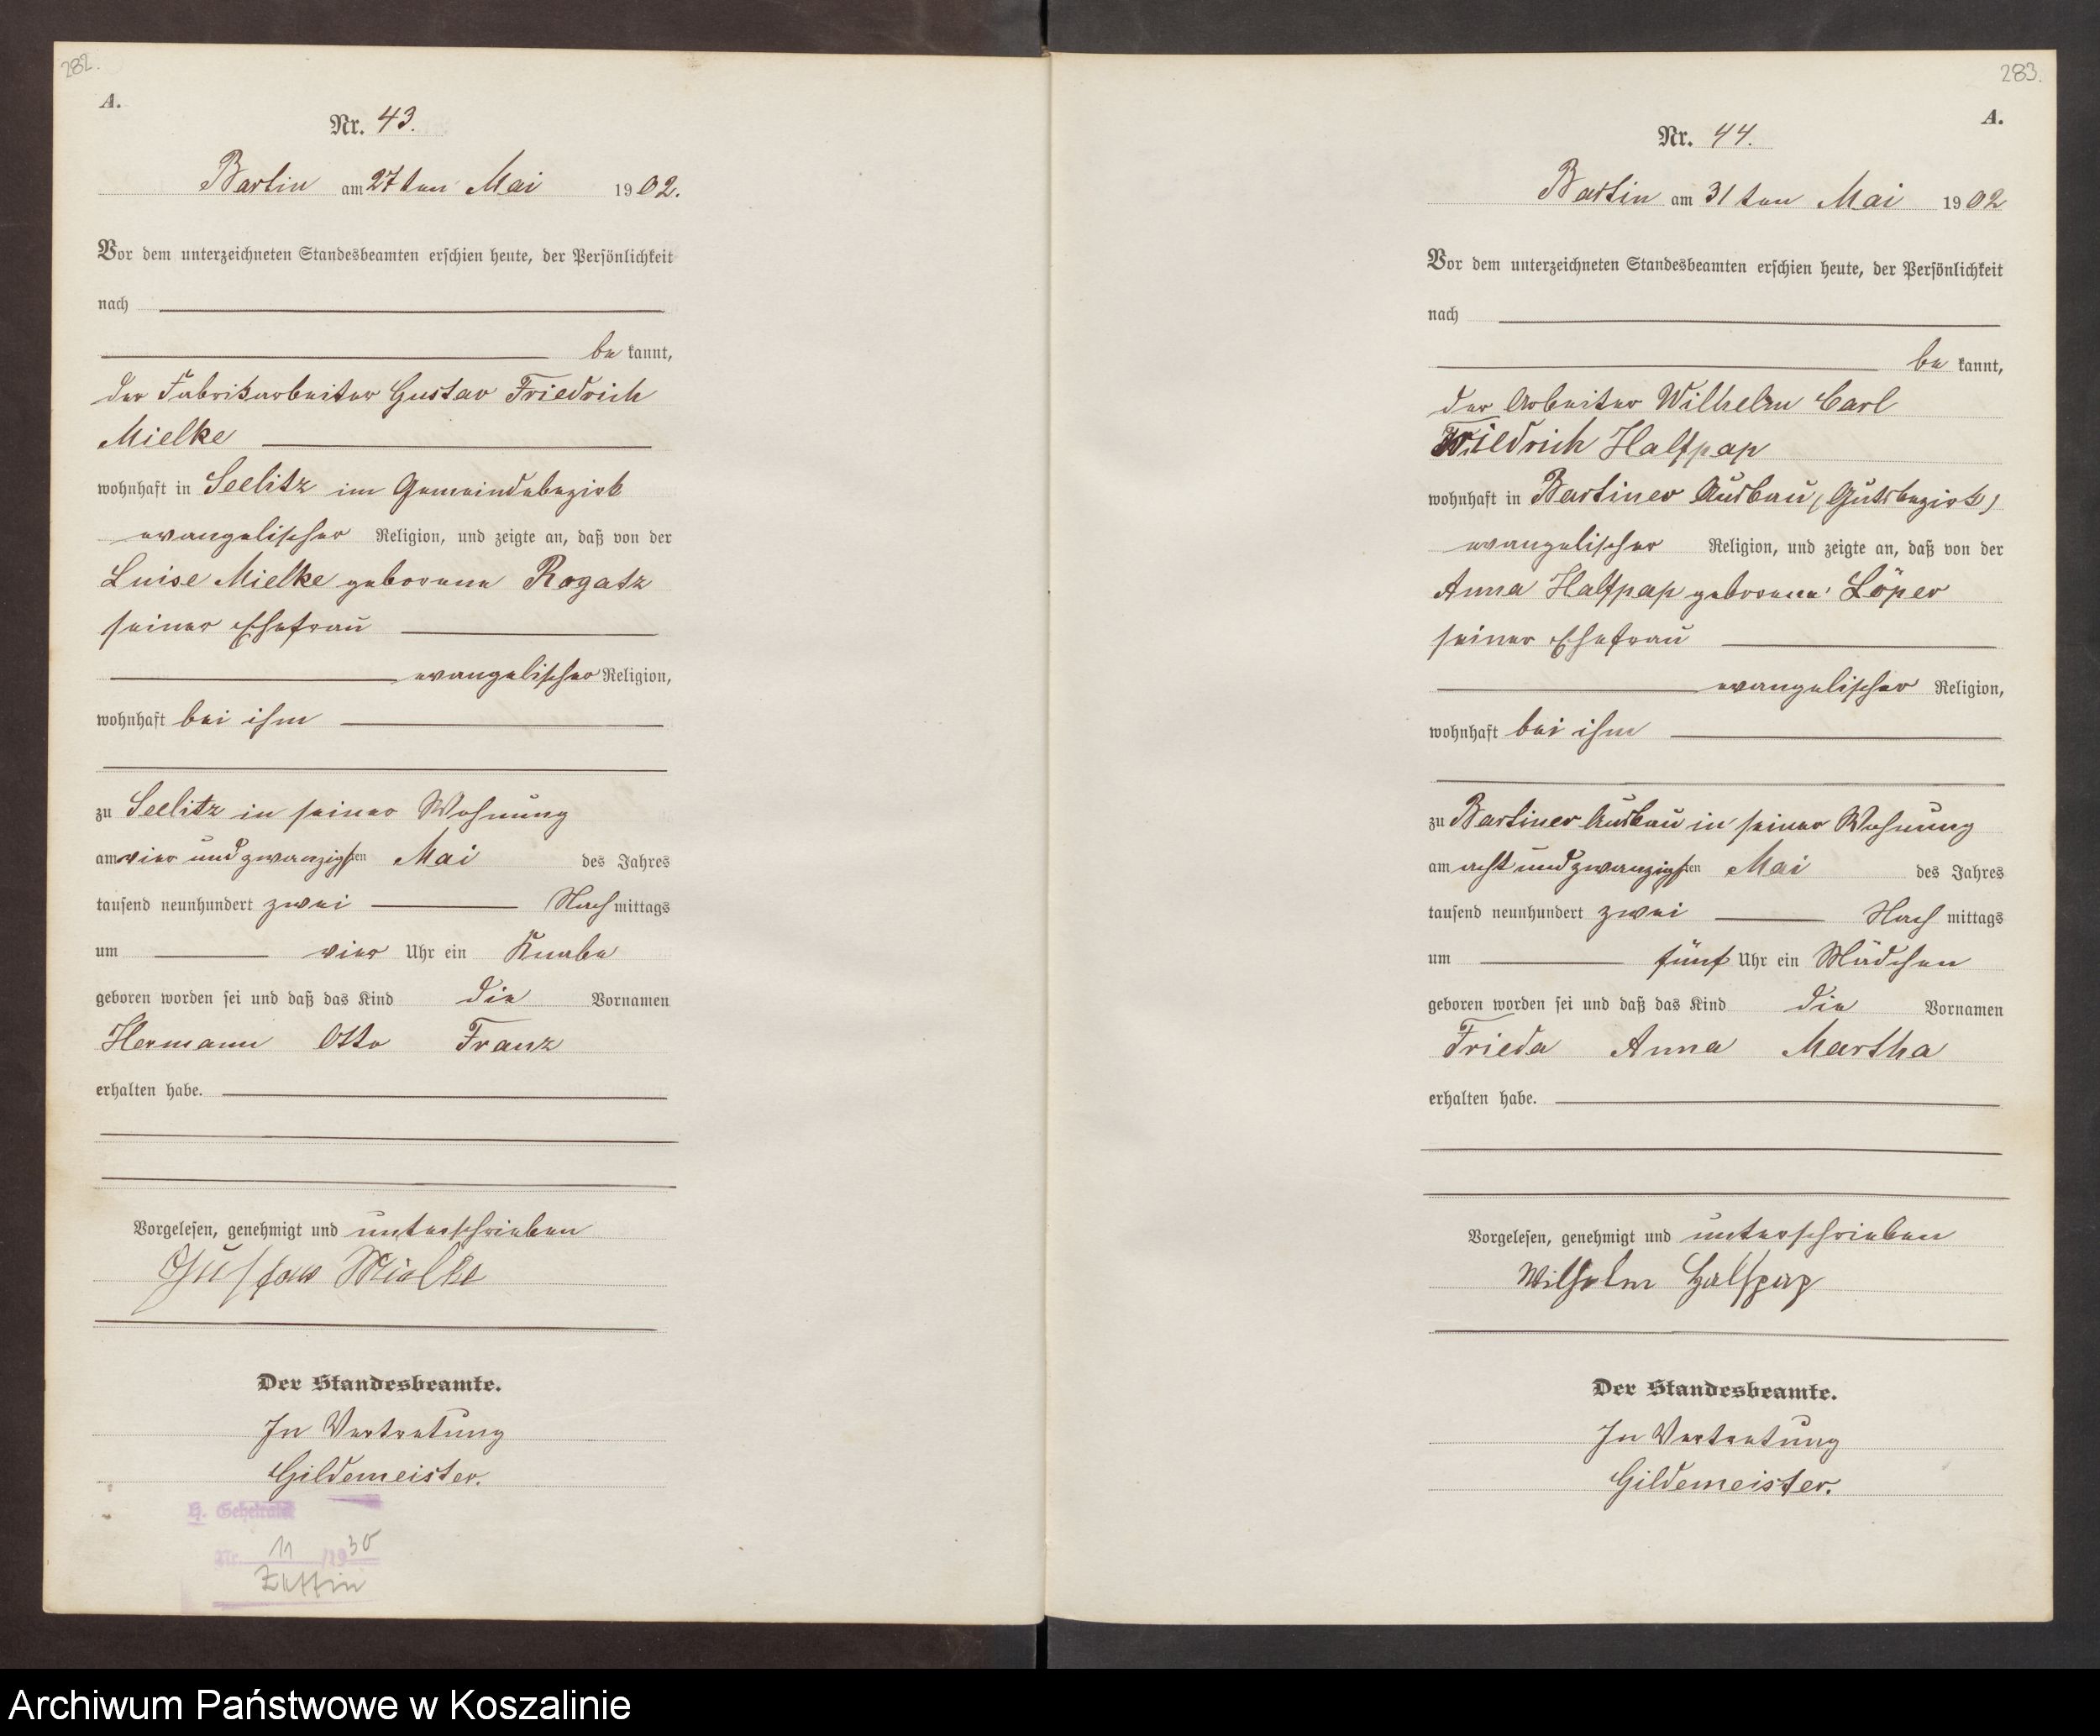 282.
A.
Nr. 43.
Bartin am 27ten Mai 1902.
Vor dem unterzeichneten Standesbeamten erschien heute, der Persönlichkeit
nach
be kannt,
der Fabrikarbeiter Gustav Friedrich
Mielke
wohnhaft in Seelitz im Gemeindebezirk
evangelischer Religion, und zeigte an, daß von der
Luise Mielke geborene Rogatz
seiner Ehefrau
evangelischer Religion,
wohnhaft bei ihm
zu Seelitz in seiner Wohnung
am vier und zwanzigsten Mai des Jahres
tausend neunhundert zwei Nachmittags
um vier Uhr ein Knabe
geboren worden sei und daß das Kind die Vornamen
Hermann Otto Franz
erhalten habe.
Vorgelesen, genehmigt und unterschrieben
Gustav Mielke
Der Standesbeamte.
In Vertretung
Gildemeister.
H. Geheiratet
Nr. 11 /1930
Zettin
283.
A.
Nr. 44.
Bartin am 31ten Mai 1902
Vor dem unterzeichneten Standesbeamten erschien heute, der Persönlichkeit
nach
be kannt,
der Arbeiter Wilhelm Carl
Friedrich Halfpap
wohnhaft in Bartiner Ausbau (Gutsbezirk)
evangelischer Religion, und zeigte an, daß von der
Anna Halfpap geborene Löper
seiner Ehefrau
evangelischer Religion,
wohnhaft bei ihm
zu Bartiner Ausbau in seiner Wohnung
am acht und zwanzigsten Mai des Jahres
tausend neunhundert zwei Nachmittags
um fünf Uhr ein Mädchen
geboren worden sei und daß das Kind die Vornamen
Frieda Anna Martha
erhalten habe.
Vorgelesen, genehmigt und unterschrieben
Wilhelm Halfpap
Der Standesbeamte.
In Vertretung
Gildemeister.
Archiwum Państwowe w Koszalinie